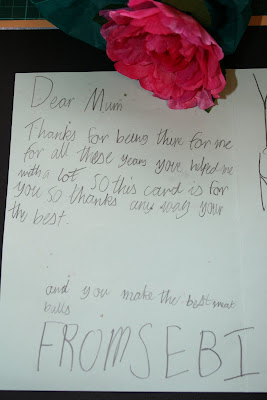 Dear Mum
Thanks for being there for me
for all these years youve helped me
with a lot so this card is for
you so thanks any way your
the best.
and you make the best meat
balls
FROM SEBI